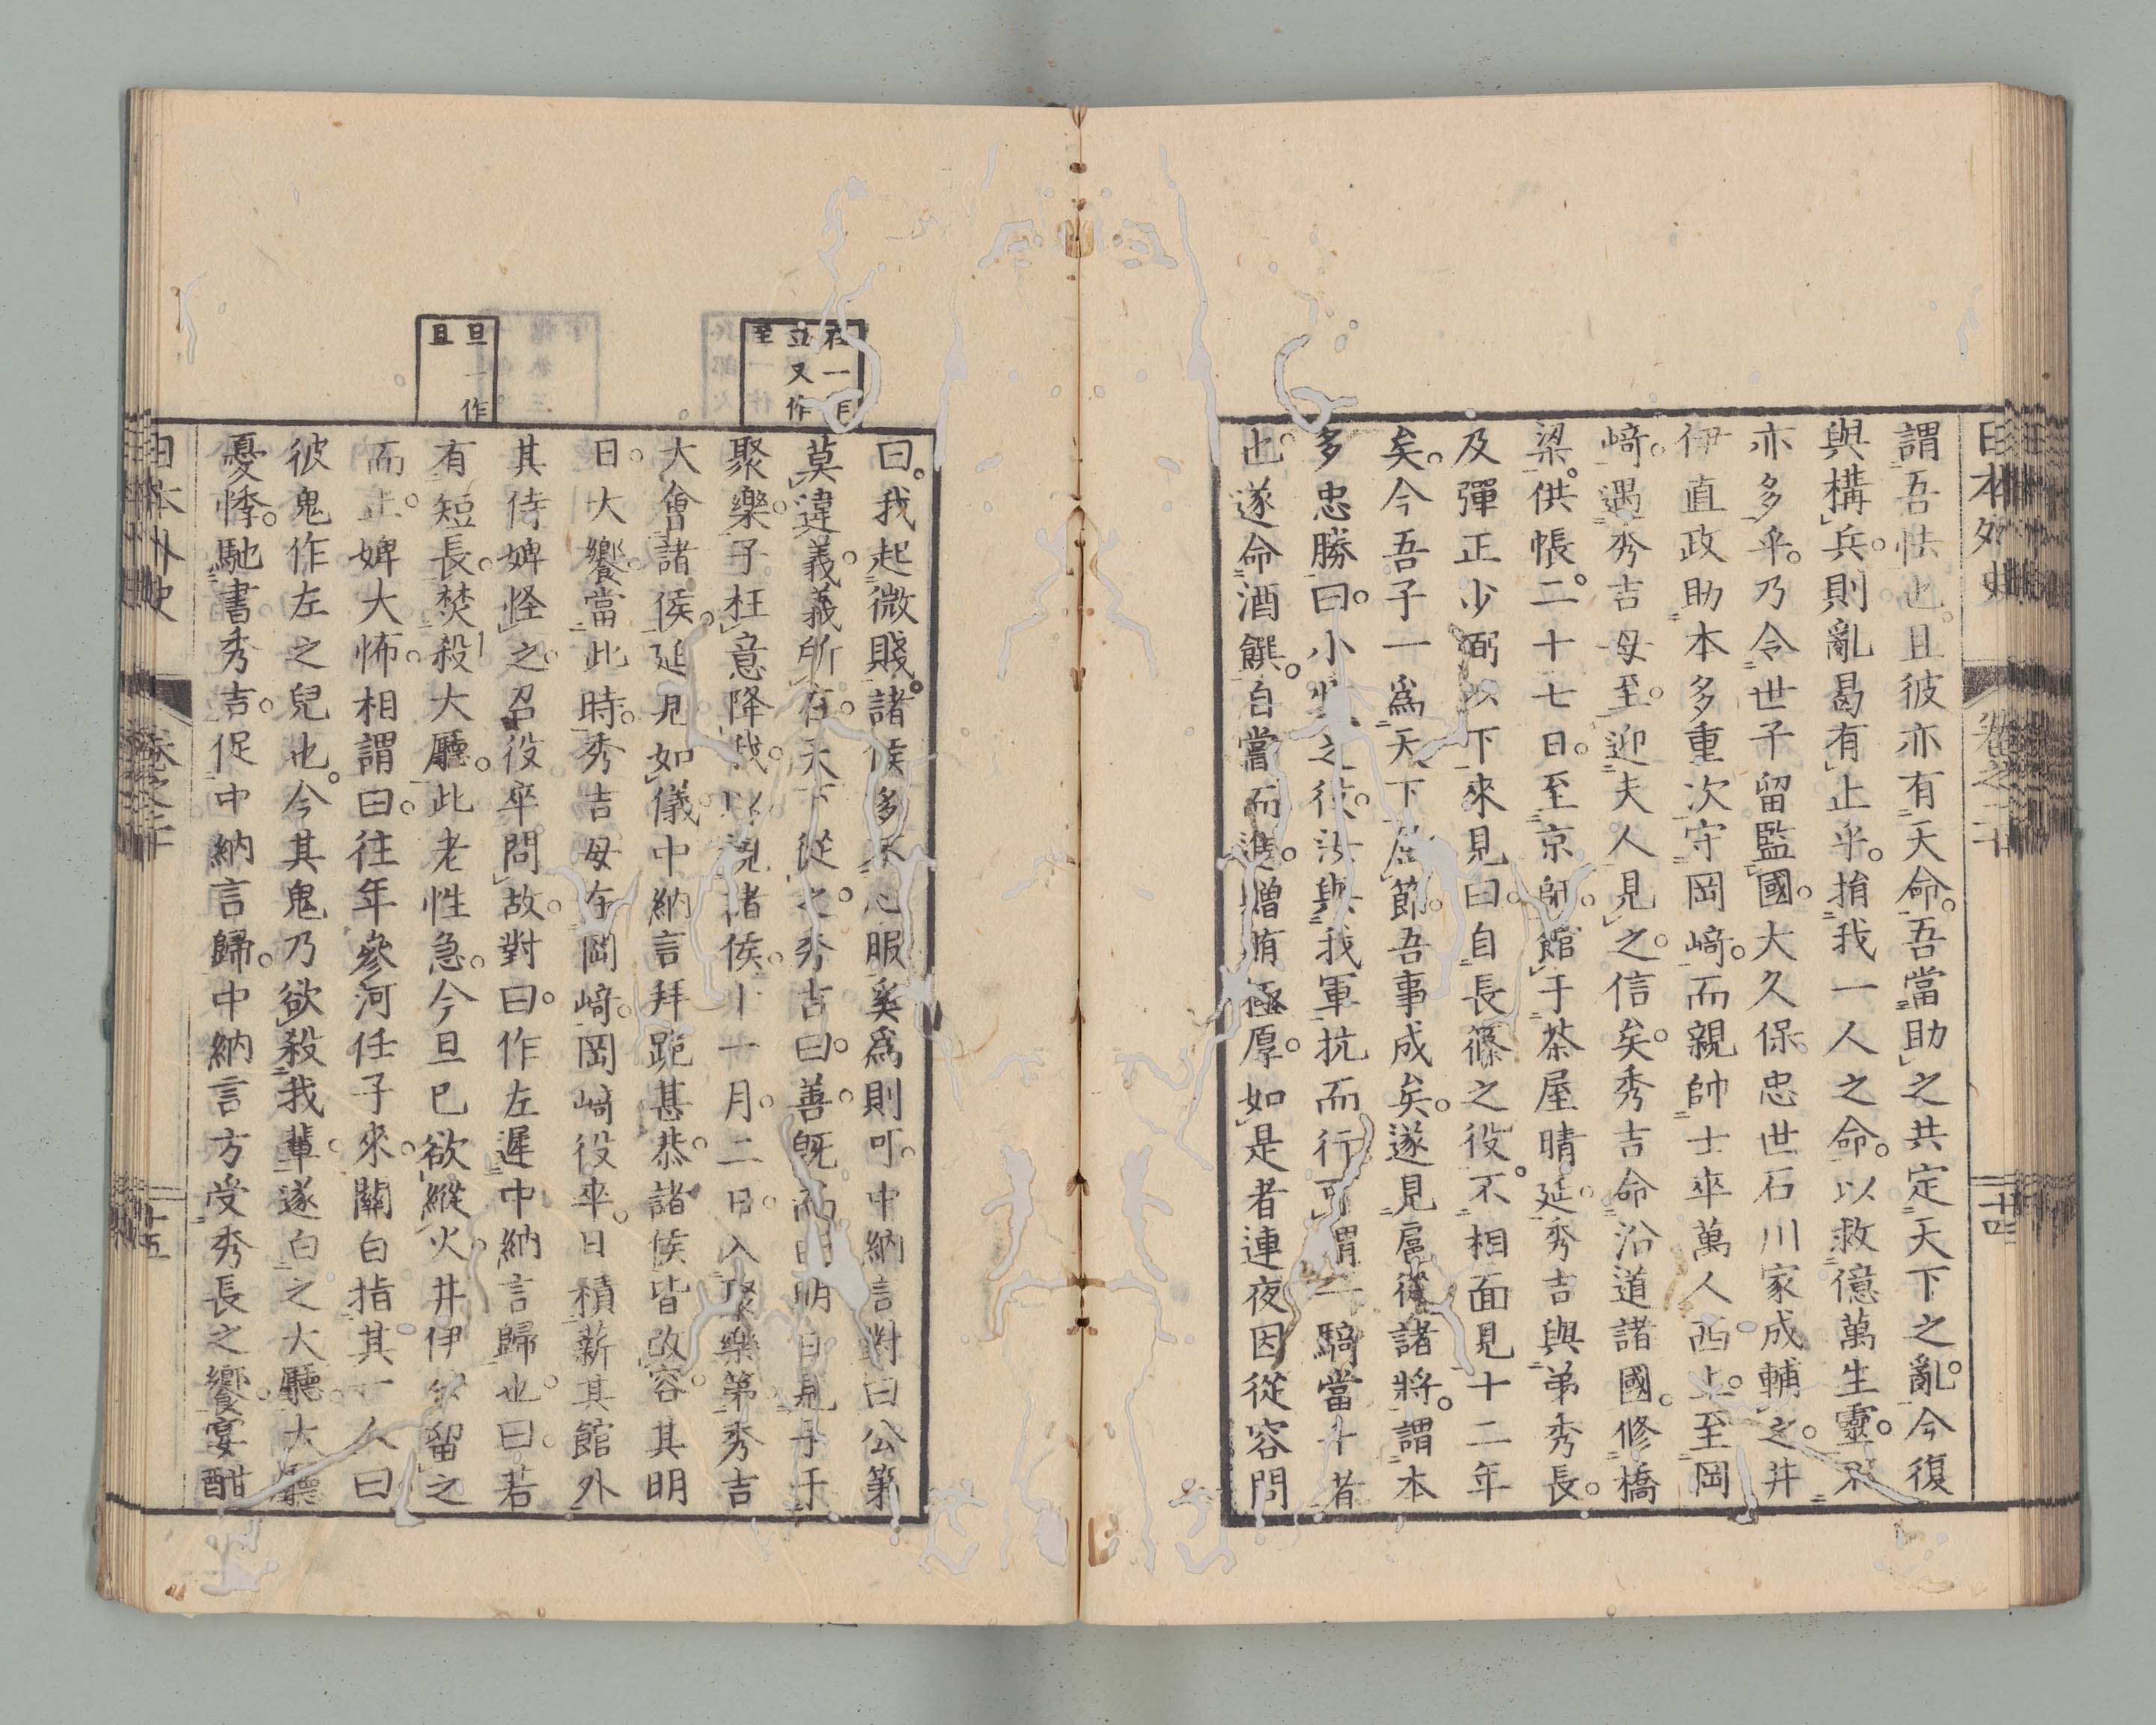 日本外史 卷之二十 十四
謂吾怯也。且彼亦有天命。吾當助之共定天下之亂。今復
與構兵。則亂曷有止乎。捐我一人之命。以救億萬生靈。不
亦多乎。乃令世子留監國。大久保忠世石川家成輔之。井
伊直政助本多重次守岡﨑。而親帥士卒萬人西上。至岡
﨑。遇秀吉母至。迎夫人見之。信矣。秀吉命沿道諸國。修橋
梁。供帳。二十七日。至京師。館于茶屋晴延。秀吉與弟秀長。
及彈正少弼以下來見。曰。自長篠之役。不相面見十二年
矣。今吾子一爲天下屈節。吾事成矣。遂見扈從諸將。謂本
多忠勝。曰。小牧之役。汝與我軍抗而行。可謂一騎當千者
也。遂命酒饌。自嘗而進。贈賄極厚。如是者連夜。因從容問
曰。我起微賤。諸侯多不心服。奚爲則可。中納言對曰公第
莫違義。義所在。天下從之。秀吉曰。善。既而曰明日見子于
聚樂。子枉意降我。以視諸侯。十一月。二日。入聚樂第。秀吉
大會諸侯。延見如儀。中納言拜跪甚恭。諸侯皆改容。其明
日。大饗。當此時。秀吉母在岡﨑。岡﨑役卒。日積薪其館外
其侍婢怪之。召役卒問故。對曰。作左遲中納言歸也。曰。若
有短長。焚殺大廳。此老性急。今旦已欲縱火。井伊錄留之
而止。婢大怖。相謂曰。往年參河任子來。關白指其一人曰
彼鬼作左之兒也。今其鬼乃欲殺我輩。遂白之大廳。大廳
憂悸。馳書秀吉。促中納言歸。中納言方受秀長之饗。宴酣
立又作
至
旦一作
且
日本外史 卷之二十 十五